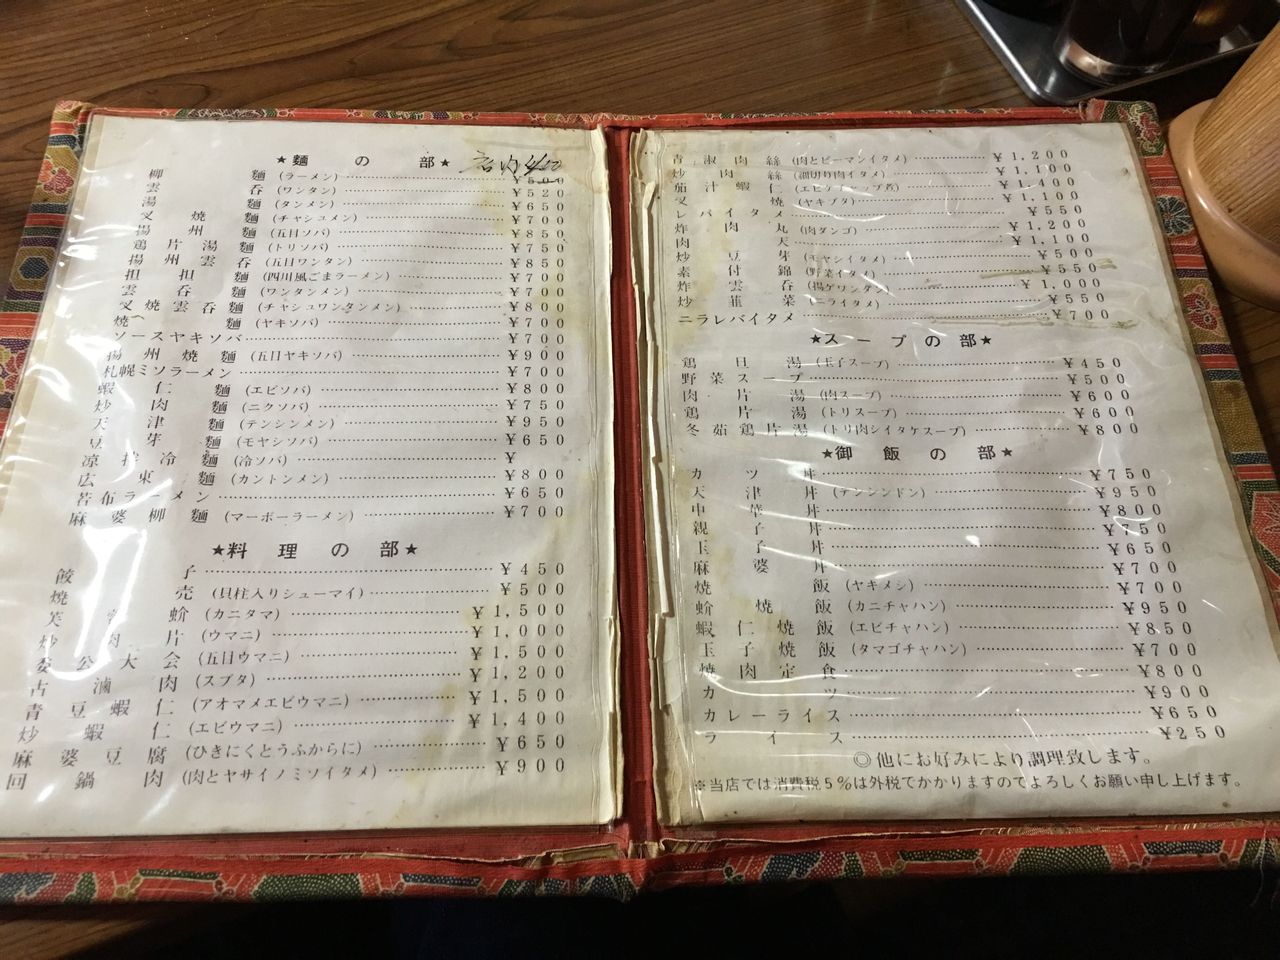 ★麺の部★
柳麺(ラーメン)¥500
雲呑(ワンタン)¥520
湯麺(タンメン)¥650
叉焼麺(チャシュメン)¥700
揚州麺(五目ソバ)¥850
鶏片湯麺(トリソバ)¥750
揚州雲呑(五目ワンタン)¥850
担担麺(四川風ごまラーメン)¥700
雲呑麺(ワンタンメン)¥700
叉焼雲呑麺(チャシュワンタンメン)¥800
焼麺(ヤキソバ)¥700
ソースヤキソバ¥700
揚州焼麺(五目ヤキソバ)¥900
札幌ミソラーメン¥700
蝦仁麺(エビソバ)¥800
炒肉麺(ニクソバ)¥750
天津麺(テンシンメン)¥950
豆芽麺(モヤシソバ)¥650
涼拌冷麺(冷ソバ)¥
広東麺(カントンメン)¥800
若布ラーメン¥650
麻婆柳麺(マーボーラーメン)¥700
★料理の部★
餃子¥450
焼売(貝柱入りシューマイ)¥500
芙蓉蚧(カニタマ)¥1,500
炒肉片(ウマニ)¥1,000
委公大会(五目ウマニ)¥1,500
古滷肉(スブタ)¥1,200
青豆蝦仁(アオマメエビウマニ)¥1,500
炒蝦仁(エビウマニ)¥1,400
麻婆豆腐(ひきにくとうふからに)¥650
回鍋肉(肉とヤサイノミソイタメ)¥900
青淑肉絲(肉とピーマンイタメ)¥1,200
炒肉絲(細切り肉イタメ)¥1,100
茄汁蝦仁(エビケチャップ煮)¥1,400
叉焼(ヤキブタ)¥1,100
レバイタメ¥550
炸肉丸(肉ダンゴ)¥1,200
肉天¥1,100
炒豆芽(モヤシイタメ)¥500
素付錦(野菜イタメ)¥550
炸雲呑(揚ゲワンタン)¥1,000
炒韮菜(ニライタメ)¥550
ニラレバイタメ¥700
★スープの部★
鶏旦湯(玉子スープ)¥450
野菜スープ¥500
肉片湯(肉スープ)¥600
鶏片湯(トリスープ)¥600
冬茹鶏片湯(トリ肉シイタケスープ)¥800
★御飯の部★
カツ丼¥750
天津丼(テンシンドン)¥950
中華丼¥800
親子丼¥750
玉子丼¥650
麻婆丼¥700
焼飯(ヤキメシ)¥700
蚧焼飯(カニチャハン)¥950
蝦仁焼飯(エビチャハン)¥850
玉子焼飯(タマゴチャハン)¥700
焼肉定食¥800
カツ¥900
カレーライス¥650
ライス¥250
◎他にお好みにより調理致します。
※当店では消費税5%は外税でかかりますのでよろしくお願い申し上げます。